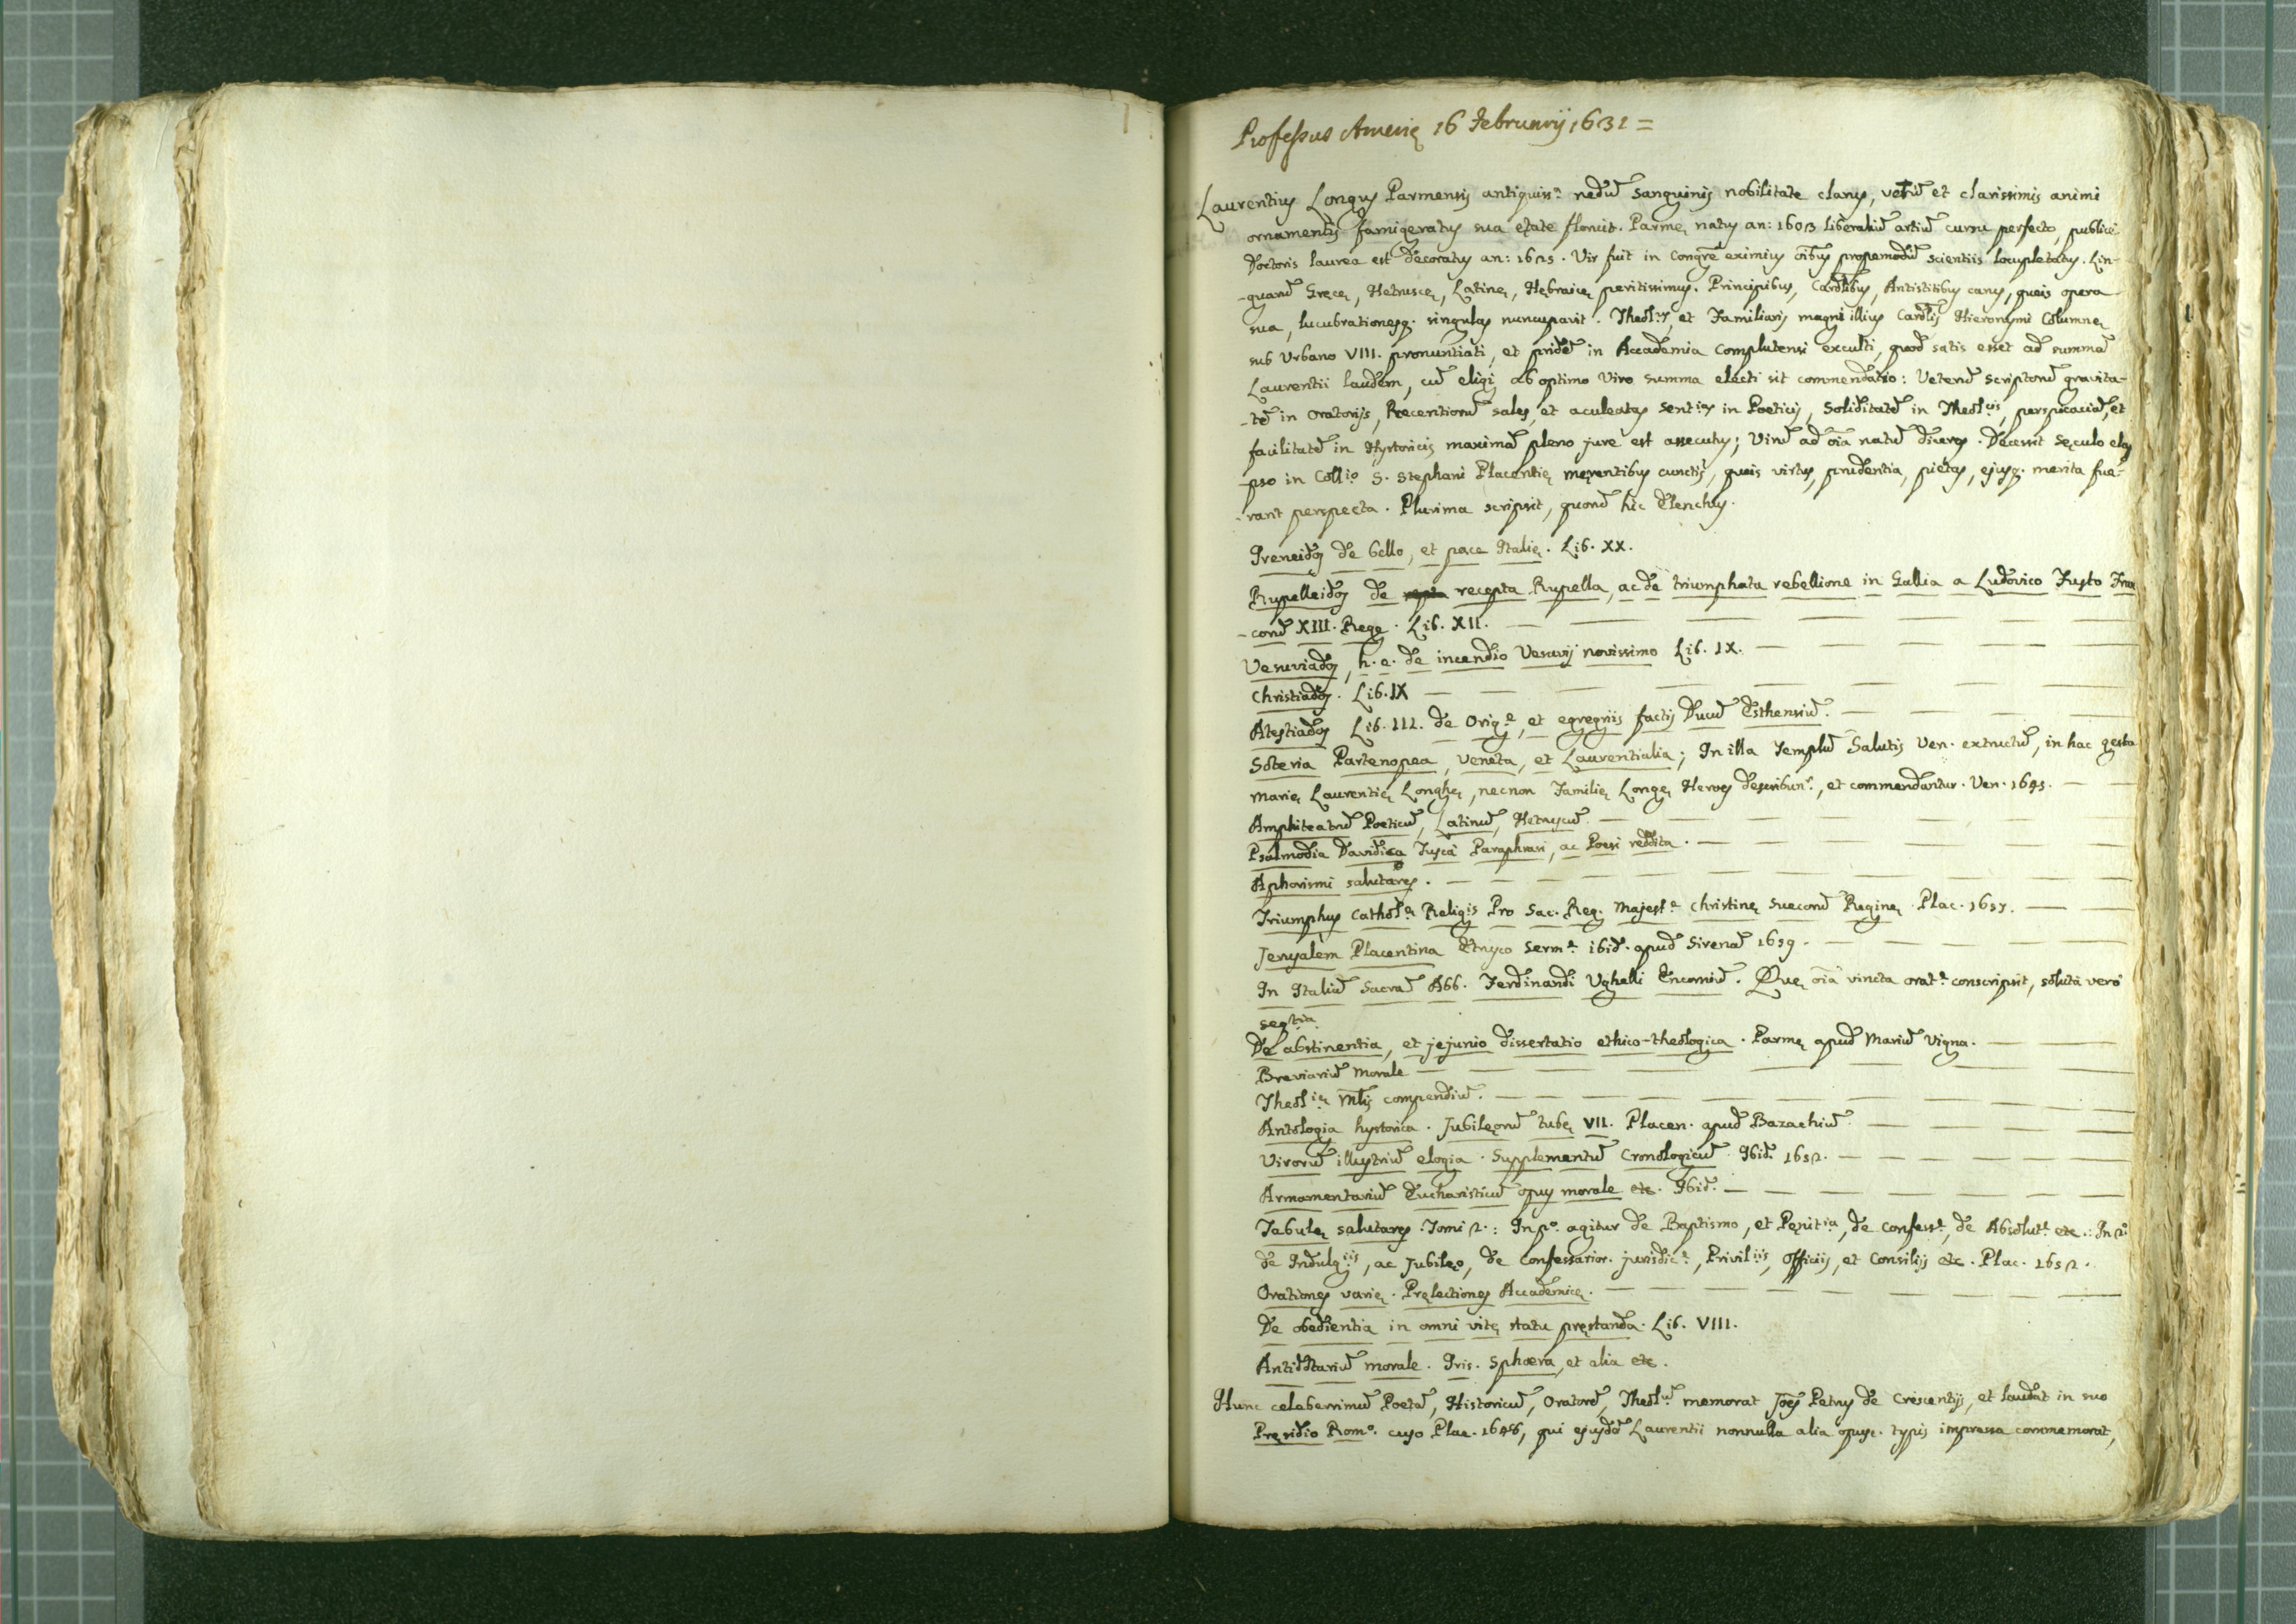 Professus Amerię 16 Februarij 1631 =
Laurentius Longus Parmensis antiquiss.ᵃ nedū sanguinis nobilitate clarus, verū et clarissimis animi
ornamentis famigeratus sua ętate floruit. Parmę natus an: 1603 liberaliū artiū cursu perfecto, publice
Doctoris laurea est decoratus an: 1625. Vir fuit in Congrē eximius oībus propemodū scientiis locupletatus. Lin-
-guarū Gręcę, Hetruscę, Latinę, Hębraicę peritissimus. Principibus, Cardlibus, Antistitibus carus, queis opera
sua, lucubrationesq. singulas nuncupavit. Theol.ˢ, et Familiaris magni illius Cardlis Hieronymi Columnę
sub Urbano VIII. pronuntiati, et pridē in Accademia Complutensi exculti, quod satis esset ad summā
Laurentii laudem, cū eligi ab optimo viro summa electi sit commendatio: Veterū scriptorū gravita-
-tē in Oratorijs, Recentiorū sales, et aculeatas sent.ᵃˢ in Poeticis, soliditatē in Theol.ᶜⁱˢ, perspicaciā, et
facilitatē in Hystoricis maximā pleno jure est assecutus; Virū ad oīa natū diceres. Decessit sęculo ela
pso in Coll.ᵒ S. Stephani Placentię męrentibus cunctis, queis virtus, prudentia, pietas, ejusq. merita fue-
-rant perspecta. Plurima scripsit, quorū hic Elenchus.
Ireneidos de bello, et pace Italię. Lib. XX.
Rupelleidos de recepta Rupella, ac de triumphata rebellione in Gallia a Ludovico Justo Fran
-corū XIII. Rege. Lib. XII.
Vesuviados, h. e. de incendio Vesuvij novissimo Lib. IX.
Christiados. Lib. IX
Atestiados Lib. III. de Orig.ᵉ, et egregiis factis Ducū Esthensiū.
Soteria Partenopea, Veneta, et Laurentialia; In illa Templū Salutis Ven. extructū, in hac gesta
Marię Laurentię Longhę, necnon Familię Longę Heroes describun.ʳ, et commendantur. Ven. 1645.
Amphiteatrū Poeticū, Latinū, Hetruscū.
Psalmodia Davidica Tuscā Paraphrasi, ac Poesi reddita.
Aphorismi salutares.
Triumphus Cathol.ᵃ Religis Pro Sac. Reg. Majest.ᵉ Christinę Suecorū Reginę. Plac. 1657.
Jerusalem Placentina Etrusco serm.ᵉ ibid. apud Sirenā 1659.
In Italiā Sacrā Abb. Ferdinandi Ughelli Encomiū. Quę oīa vincta orat.ᵉ conscripsit, soluta vero
seq.tia
De abstinentia, et jejunio dissertatio ethico-theologica. Parmę apud Mariū Vigna.
Breviariū Morale
Theol.ⁱę Mlis compendiū.
Antologia hystorica. Jubilęorū tubę VII. Placen. apud Bazachiū.
Virorū illustriū elogia. Supplementū Cronologicū. Ibid. 1652.
Armamentariū Eucharisticū opus morale etc. Ibid.
Tabulę salutares. Tomi 2.: In p.ᵒ agitur de Baptismo, et Pęnit.ⁱᵃ, de Confess.ᵉ, de Absolut.ᵉ etc.: In 2.ᵒ
de Indulg.ⁱⁱˢ, ac Jubilęo, de Confessarior. jurisdic.ᵉ, Privil.ⁱⁱˢ, Officiis, et Consiliis etc. Plac. 1652.
Orationes varię. Pręlectiones Accademicę.
De obedientia in omni vitę statu pręstanda. Lib. VIII.
Antidotariū morale. Iris. Sphæra, et alia etc.
Hunc celeberrimū Poetā, Historicū, Oratorē, Theol.ū memorat Joēs Petrus de Crescentijs, et laudat in suo
Pręsidio Rom.ᵒ cuso Plac. 1648, qui ejusdē Laurentii nonnulla alia opusc. typis impressa commemorat,